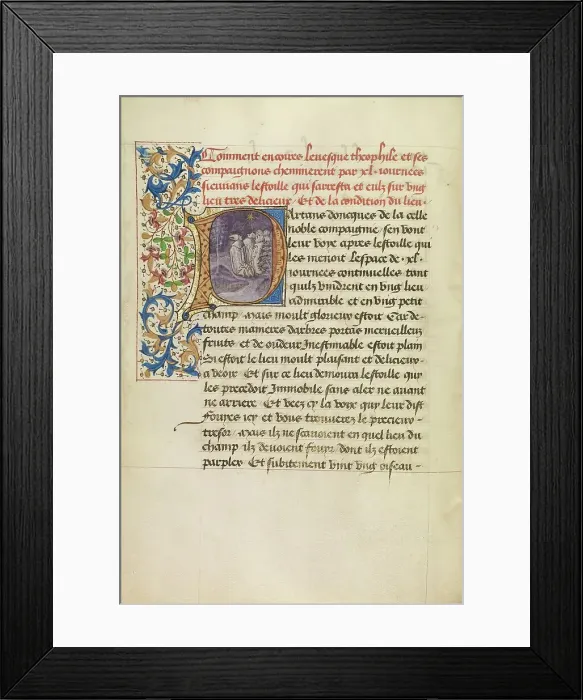 Comment encores levesque theophile et ses
compaignons cheminerent par .xl. iournees
sieuuans lestoille qui sarresta et eulz sur vng
lieu tres delicieux Et de la condition du lieu.
Partans doncques de la celle
noble compaignie sen vont
leur voye apres lestoille qui
les menoit lespace de .xl.
iournees continuelles tant
quilz vindrent en vng lieu
admirable et en vng petit
champ mais moult glorieux estoit Car de
toutes manieres darbres portans merueilleux
fruits et de oudeur Inestimable estoit plain
Si estoit le lieu moult plaisant et delicieux
a veoir Et sur ce lieu demoura lestoille quy
les precedoit Immobile sans aler ne auant
ne arriere Et veez cy la voix quy leur dist
Fouyes icy et vous trouuerez le precieux
tresor mais ilz ne scauoient en quel lieu du
champ ilz deuoient fouyr dont ilz estoient
parplex Et subitement vint vng oiseau